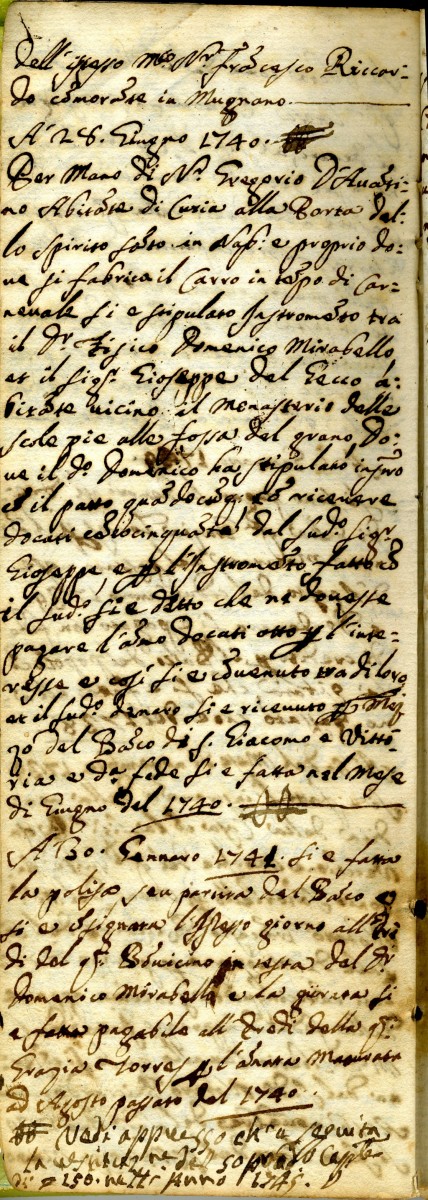 dell'istesso m.co N.r francesco Riccar=
do comorãte in Mugnano.
A' 28. Giugno 1740.
Per Mano di N.r Gregorio D'Auãti=
no Abitãte di Curia alla Porta del=
lo Spirito sãto in Nap.i e proprio do=
ue si fabrica il Carro in tẽpo di Car=
neuale si e stipulato Instromẽto tra
il D.r fisico Domenico Mirabello
et il sig.r Gioseppe del Gecco a=
bitãte uicino il Monasterio delle
scole pie alle fossa del grano, Do=
ue il d.o Domenico ha stipulato
cõ il patto quãdocũq; cõ riceuere
docati cẽtocinquãta dal sud.o sig.r
Gioseppe, e p l'Instromẽto fatto cõ
il sud.o si e detto che ne douesse
pagare l'anno docati otto p l'inte=
resse e così si e cõuenuto tra di loro
et il sud.o denaro si e riceuuto p Mez
zo del Bãco di S. Giacomo e Vitto=
ria e d.a fede si e fatta nel Mese
di Giugno del 1740.
A 30. Gennaro 1741. si e fatta
la polisa seu partita del Bãco e
si e cõsignata l'istesso giorno all'Ere
di del q.m Bõuicino in testa del D.r
Domenico Mirabello e la girata si
e fatta pagabile all'Eredi della q.m
Grazia Torres p l'ãnata Maturata
ad Agosto passato del 1740.
Vedi appresso ch'è seguita
la restituzione del sopradº Caple
di 150. nell'Anno 1745.